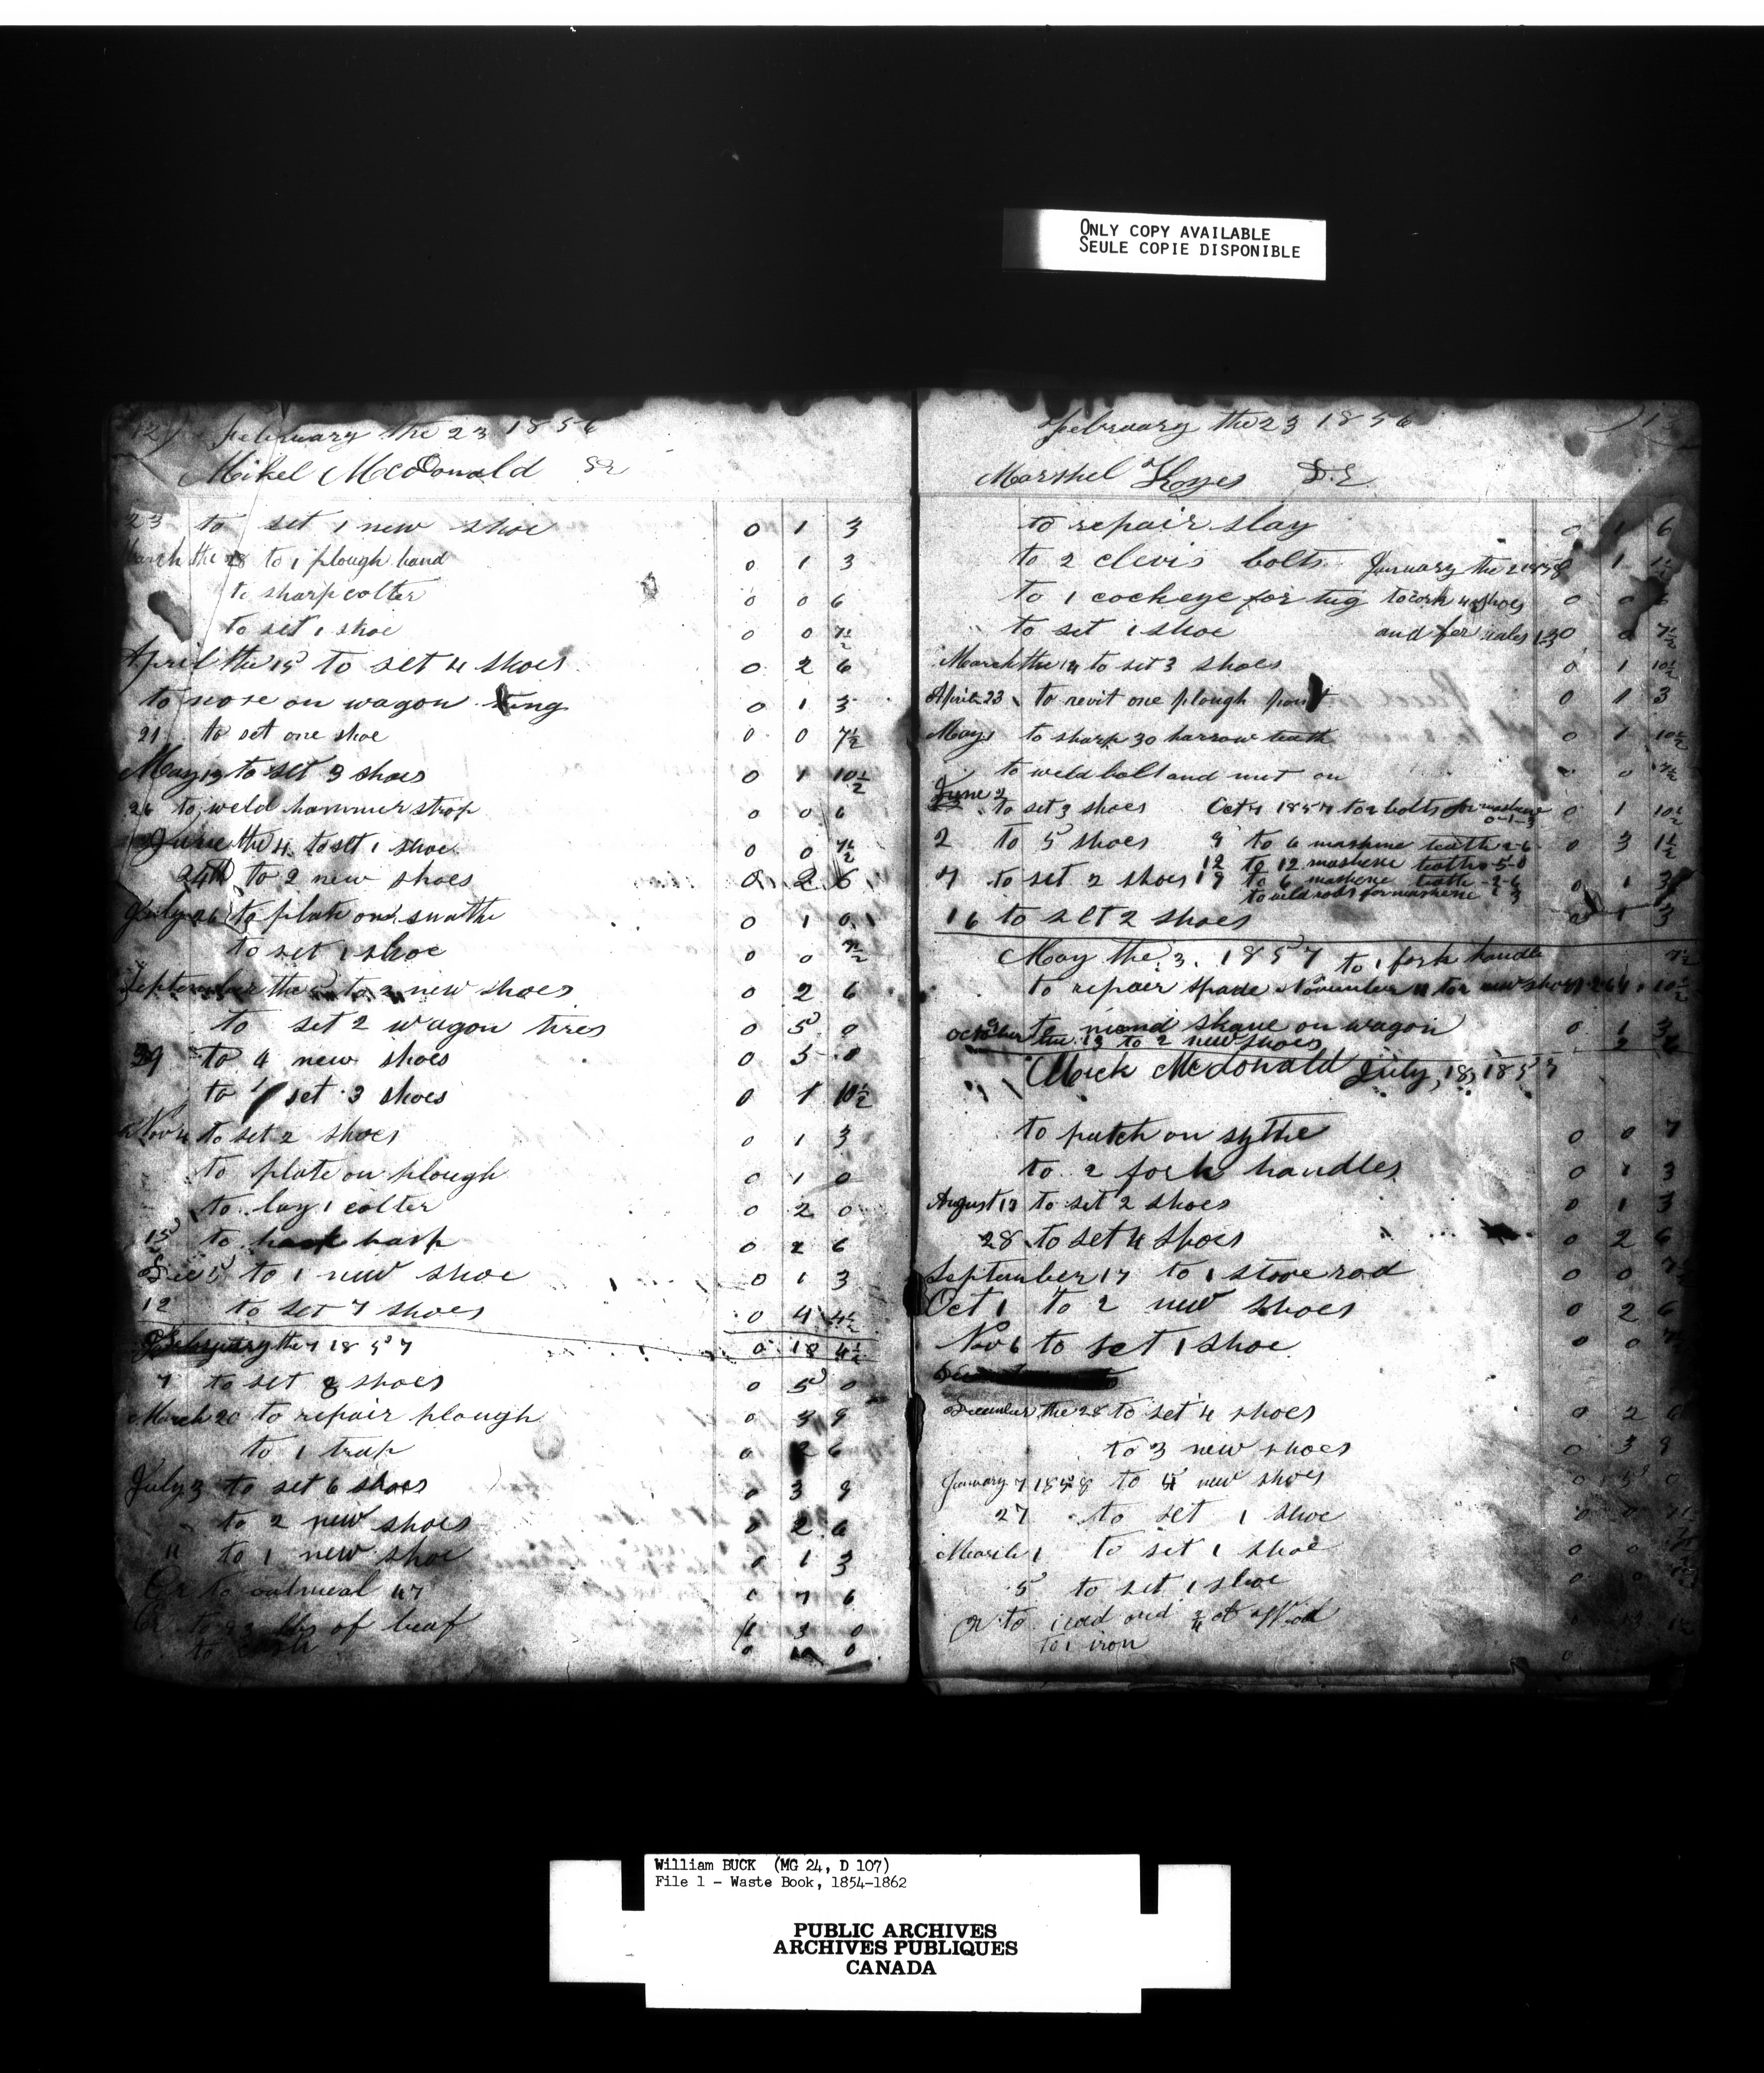 ONLY COPY AVAILABLE
SEULE COPIE DISPONIBLE
12) February the 23 1856
Mikel McDonald Dr
23 to set 1 new shoe 0 1 3
March the 28 to 1 plough band 0 1 3
to sharp colter 0 0 6
to set 1 shoe 0 0 7½
April the 15 to set 4 shoes 0 2 6
to nose on wagon tung 0 1 3
21 to set one shoe 0 0 7½
May 13 to set 3 shoes 0 1 10½
26 to weld hammer strop 0 0 6
June the 4 to set 1 shoe 0 0 7½
24th to 2 new shoes 0 2 6
July 26 to plate on snathe 0 1 0
to set 1 shoe 0 0 7½
September the 5 to 2 new shoes 0 2 6
to set 2 wagon tires 0 5 0
29 to 4 new shoes 0 5 0
to set 3 shoes 0 1 10½
Nov 4 to set 2 shoes 0 1 3
to plate on plough 0 1 0
to lay 1 colter 0 2 0
15 to hasp 0 2 6
Dec 5 to 1 new shoe 0 1 3
12 to set 7 shoes 0 4 4½
February the 7 1857 0 18 4½
7 to set 8 shoes 0 5 0
March 20 to repair plough 0 3 9
to 1 trap 0 2 6
July 3 to set 6 shoes 0 3 9
to 2 new shoes 0 2 6
11 to 1 new shoe 0 1 3
Cr to oatmeal 47 0 7 6
Cr to 93 lbs of beaf 1 3 0
to 0 0
February the 23 1856
Marshel Keyes D.E.
to repair slay 0 1 6
to 2 clevis bolts January the 2 1858 0 1 1½
to 1 cockeye for tug to cork 4 shoes 0 0 6
to set 1 shoe and for nales 1 3 0 0 7½
March the 14 to set 3 shoes 0 1 10½
April 23 to revit one plough point 0 1 3
May 1 to sharp 30 harrow teath 0 1 10½
to weld bolt and nut on 0 7½
June 2 to set 3 shoes Oct 4 1857 to 2 bolts for mashene 0-1-3 0 1 10½
2 to 5 shoes 9 to 6 mashene teath 2-6 0 3 1½
12 to 12 mashene teath 0-5-0
7 to set 2 shoes 19 to 6 mashene teath 2-6 0 1 3
to weld rods for mashene 1 3
16 to set 2 shoes 0 1 3
May the 3. 1857 to 1 fork handle 7½
to repair spade November 11 to 2 new shoes 10½
October 9 to mend skane on wagon 0 1 3
the 13 to 2 new shoes 2 6
Mick McDonald July, 18, 1857
to patch on sythe 0 0 7
to 2 fork handles 0 1 3
August 13 to set 2 shoes 0 1 3
28 to set 4 shoes 0 2 6
September 17 to 1 stove rod 0 0 7½
Oct 1 to 2 new shoes 0 2 6
Nov 6 to set 1 shoe 0 0 7
December the 28 to set 4 shoes 0 2 6
to 3 new shoes 0 3 9
January 7 1858 to 4 new shoes 0 5 0
27 to set 1 shoe 0 0 7½
March 1 to set 1 shoe 0 0 7½
5 to set 1 shoe 0 0
Cr to 1 cord and ¾ of wood 0
to 1 iron 0
William BUCK (MG 24, D 107)
File 1 - Waste Book, 1854-1862
PUBLIC ARCHIVES
ARCHIVES PUBLIQUES
CANADA